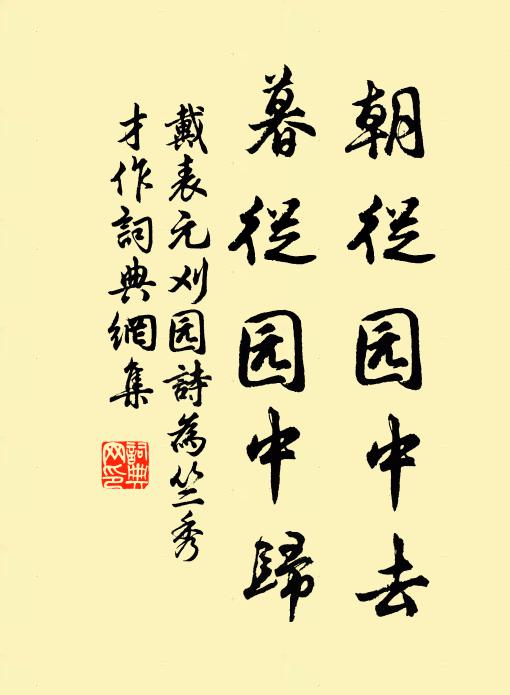 朝從园中去
暮從园中歸
戴表元刈园詩為竺秀
才作詞典網集
詞典
网印